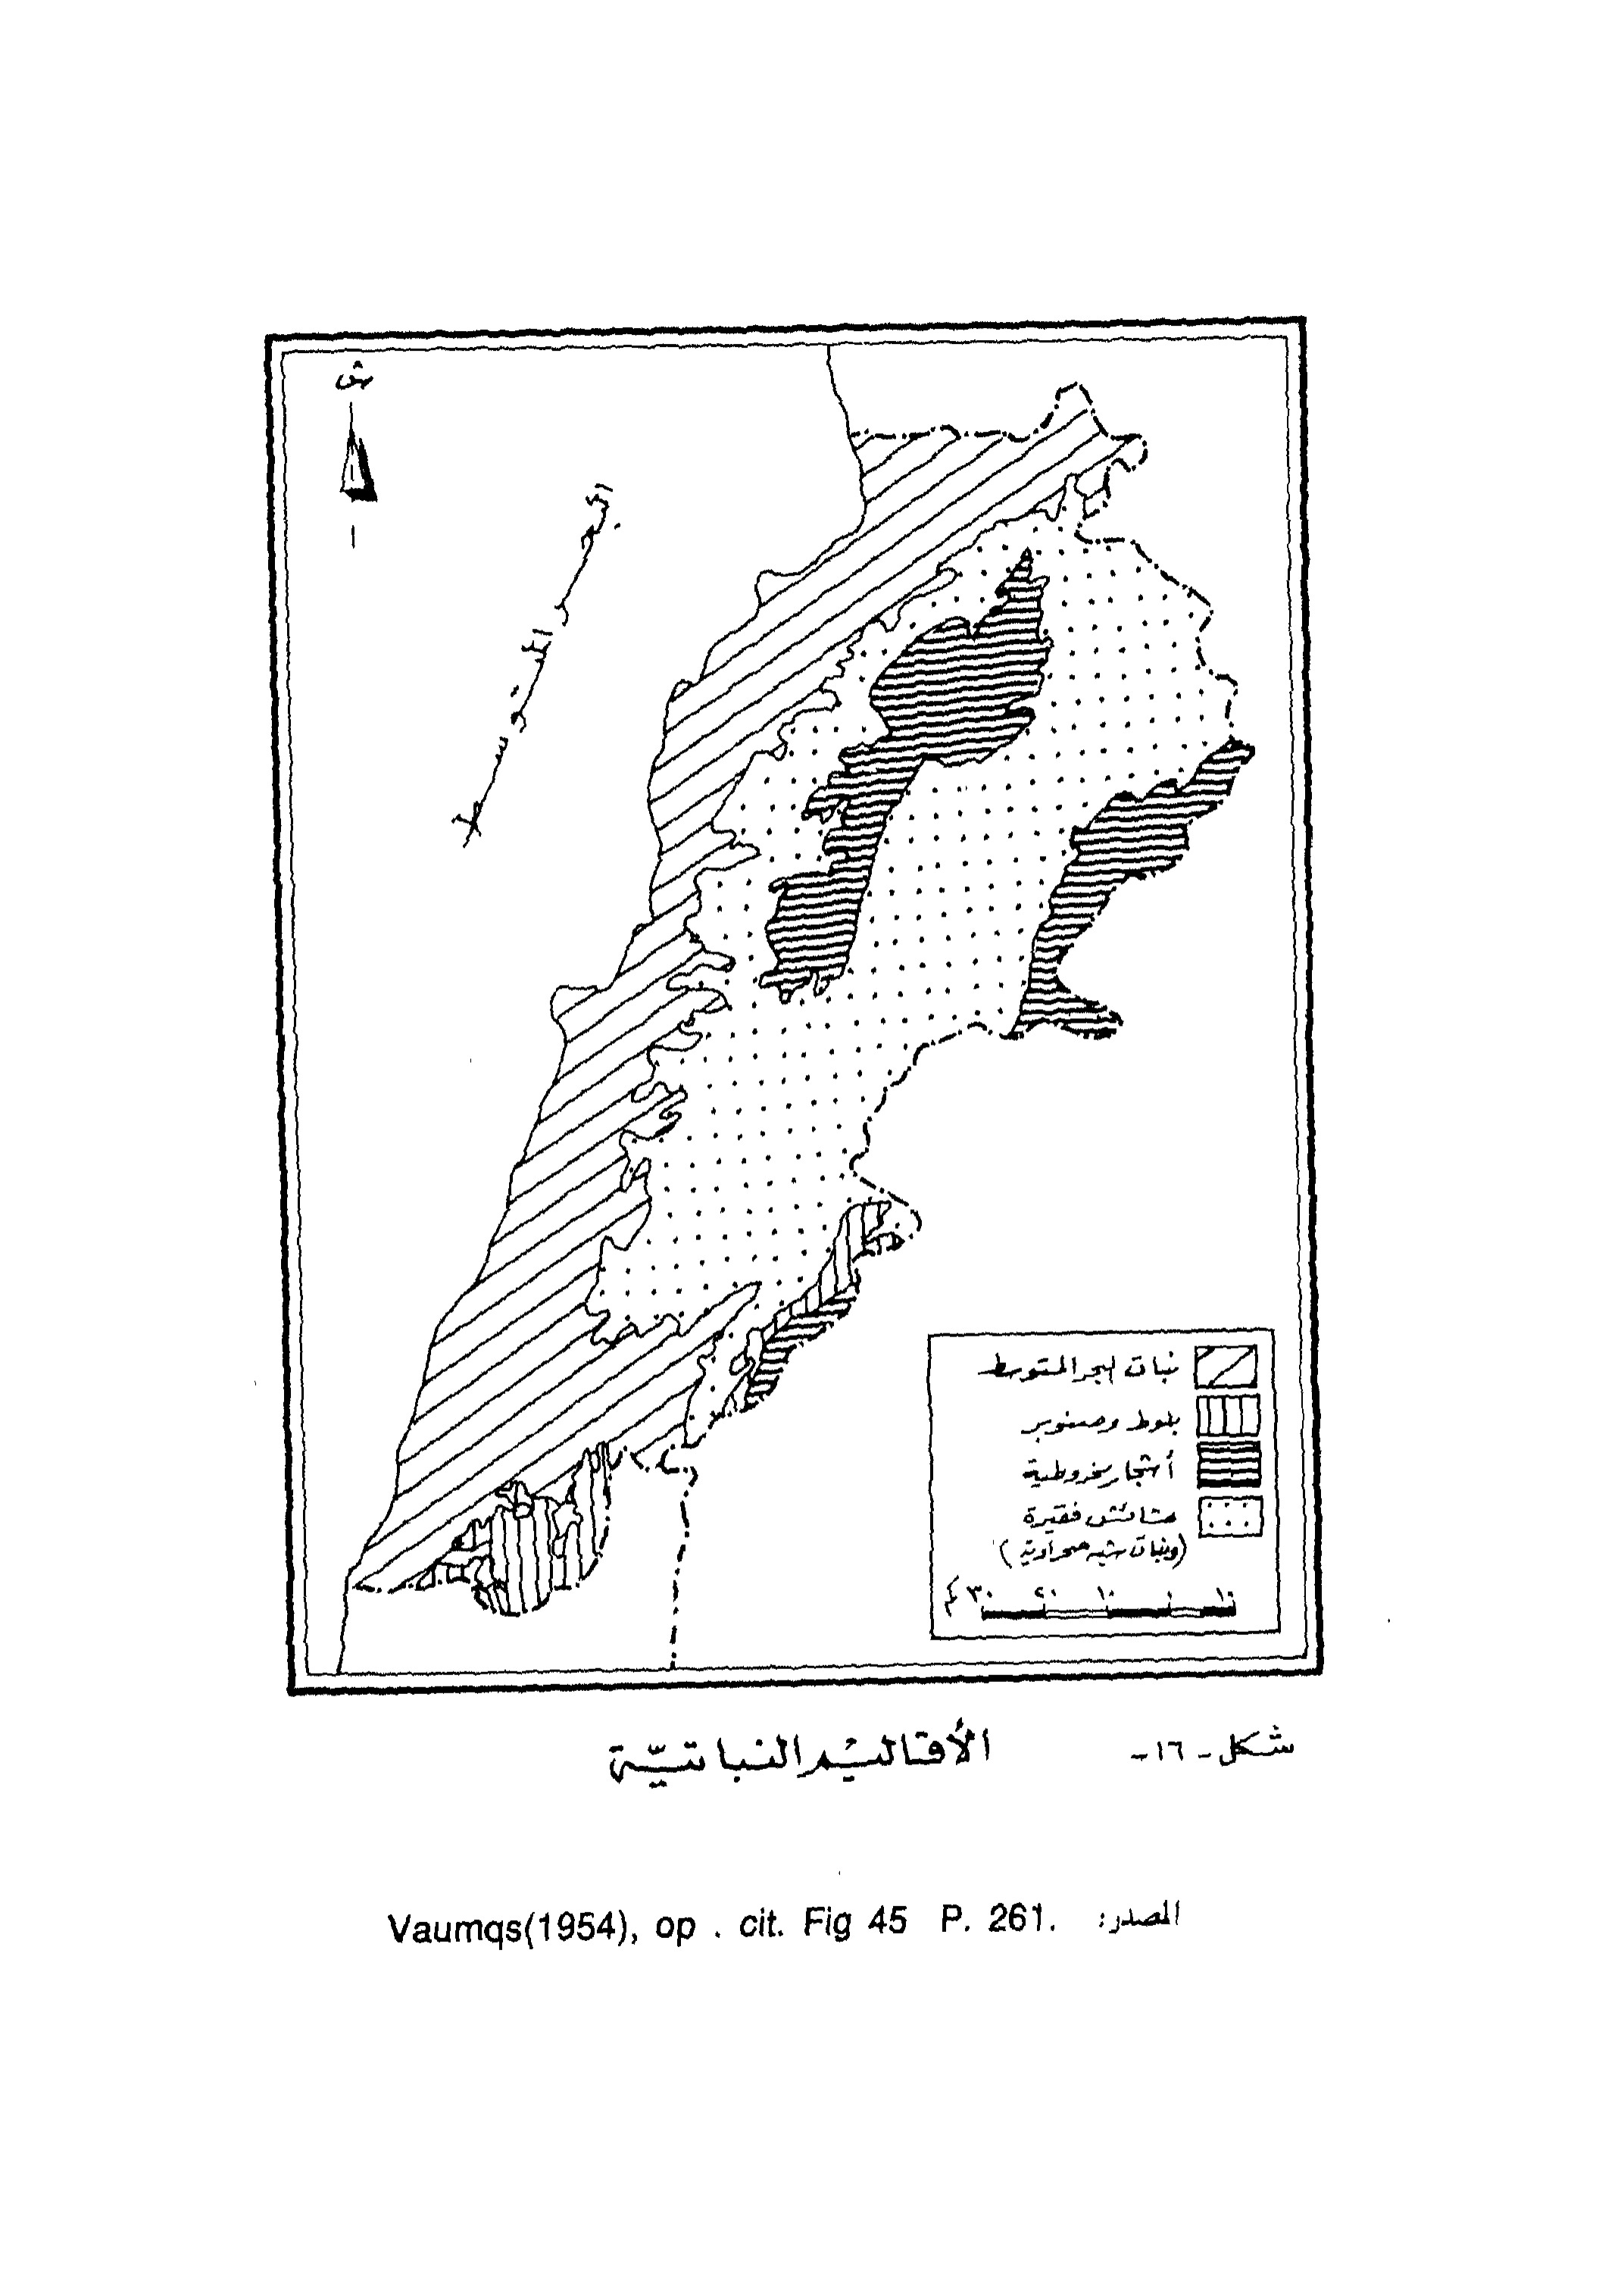 ش
البحر المتوسط
نبات البحر المتوسط
بلوط وصنوبر
أشجار مخروطية
حشائش فقيرة
(ونبات شبه صحراوية)
١٠ ٠ ١٠ ٢٠ ٣٠ كم
شكل - ١٦ -
الأقاليم النباتيّة
المصدر: Vaumqs(1954), op . cit. Fig 45 P. 261.